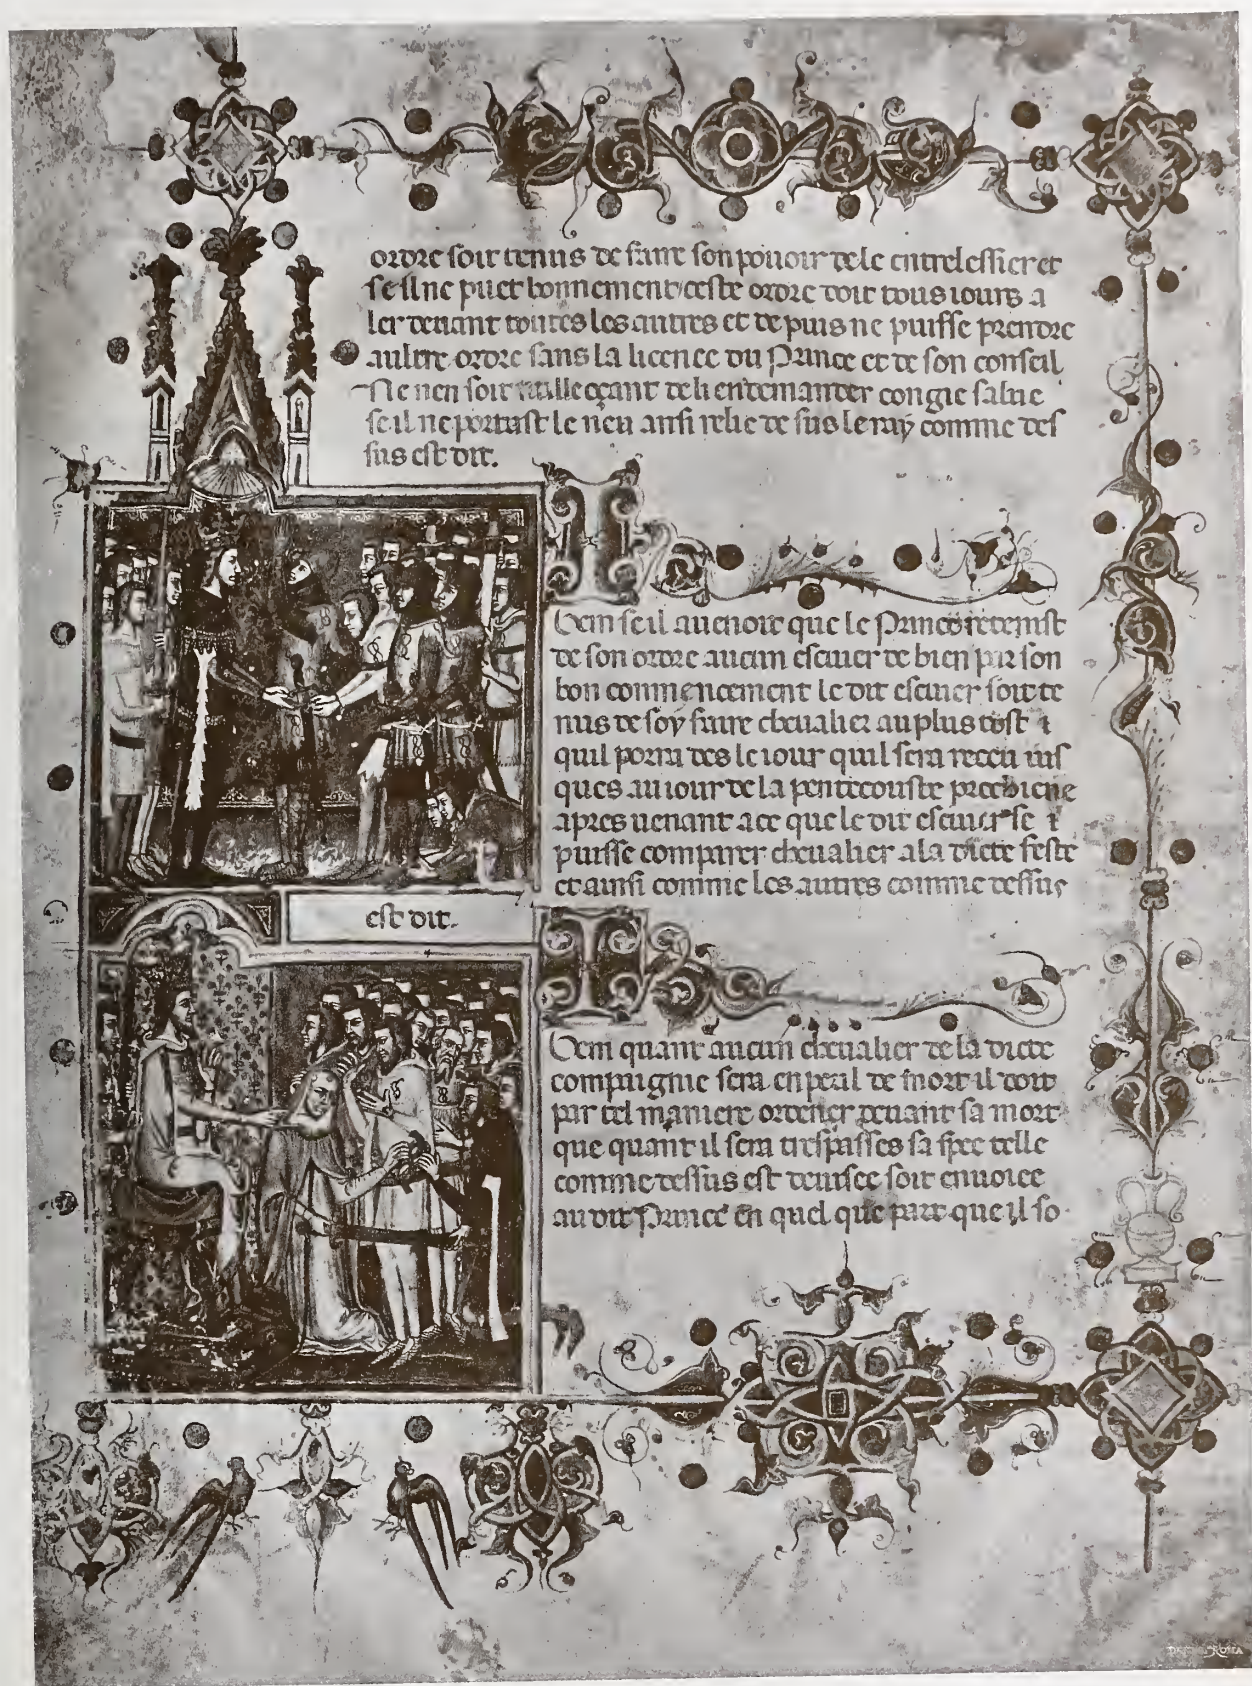 ordre soit tenus de faire son pouoir de le entrelessier et
se il ne puet bonnement ceste ordre doit tous iours a
ler deuant toutes les autres et de puis ne puisse prendre
aultre ordre sans la licence du Prince et de son conseil
Ne nen soit de li en demander congie salue
se il ne portast le neu ansi relie de sus le ray comme des
sus est dit.
Item se il auenoit que le Prince retenist
de son ordre aucun escuier de bien par son
bon commencement le dit escuier soit te
nus de soy faire cheualier au plus tost
quil porra des le iour quil sera receu ius
ques au iour de la pentecouste prochiene
apres uenant a ce que le dit escuier se
puisse comparer cheualier a la dicte feste
et ainsi comme les autres comme dessus
est dit.
Item quant aucun cheualier de la dicte
compaignie sera en peril de mort il doit
par tel maniere ordener deuant sa mort
que quant il sera trespasses sa spee telle
comme dessus est deuisee soit enuoiee
au dit Prince en quel que part que il so